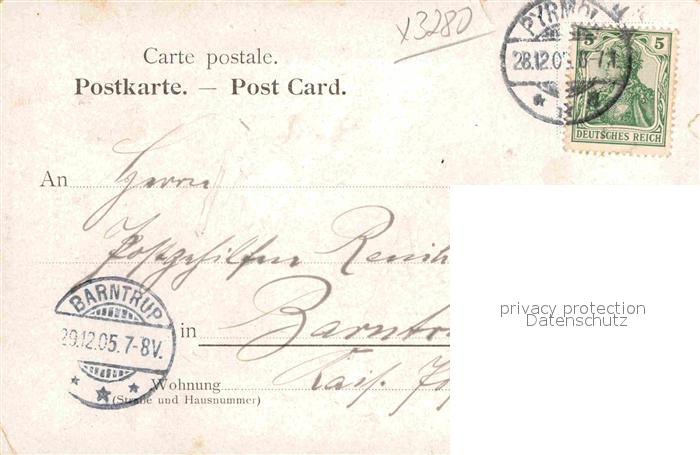 x3280
PYRMO
28.12.05.
5 5
DEUTSCHES REICH
Carte postale.
Postkarte. — Post Card.
An Herrn
Postgehilfen
BARNTRUP
29.12.05.7-8V.
in Barntr
Wohnung Kais.
(Straße und Hausnummer)
privacy protection
Datenschutz